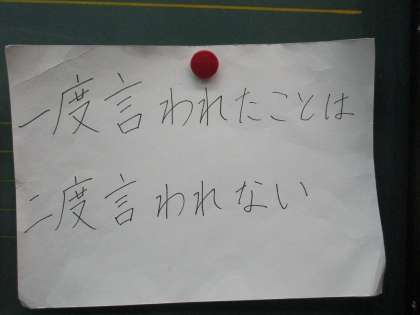 一度言われたことは
二度言われない